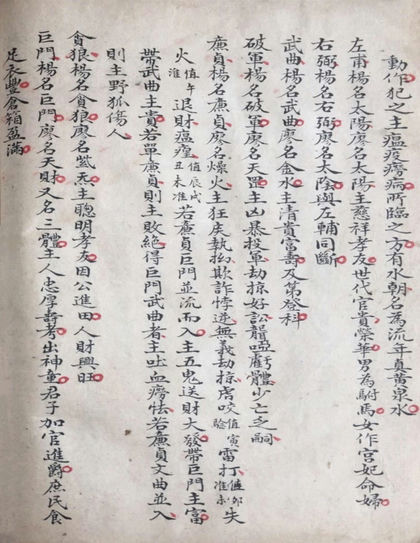 動作犯之主瘟疫癆病所臨之方有水朝名為流年真黃泉水
左甫楊名太陽廖名太陽主慈祥孝友世代官貴榮華男為駙馬女作宮妃命婦
右弼楊名右弼廖名太陰與左輔同斷
武曲楊名武曲廖名金水主清貴富壽及第發科
破軍楊名破軍廖名天罡主凶暴投軍劫掠好訟聾啞虧體少亡乏嗣
廉貞楊名廉貞廖名燥火主狂戾執拗欺詐悖逆無義劫掠虎咬值寅驗雷打值卯准未失
火值午准退財瘟瘟值辰戌丑未准若廉貞巨門並流而入主五鬼送財大發帶巨門主富
帶武曲主貴若單廉貞則主敗絕得巨門武曲者主吐血癆怯若廉貞文曲並入
則主野狐傷人
貪狼楊名貪狼廖名紫炁主聰明孝友因公進田人財興旺
巨門楊名巨門廖名天財又名三體主人忠厚壽考出神童君子加官進爵庶民食
足衣豐倉箱盈滿